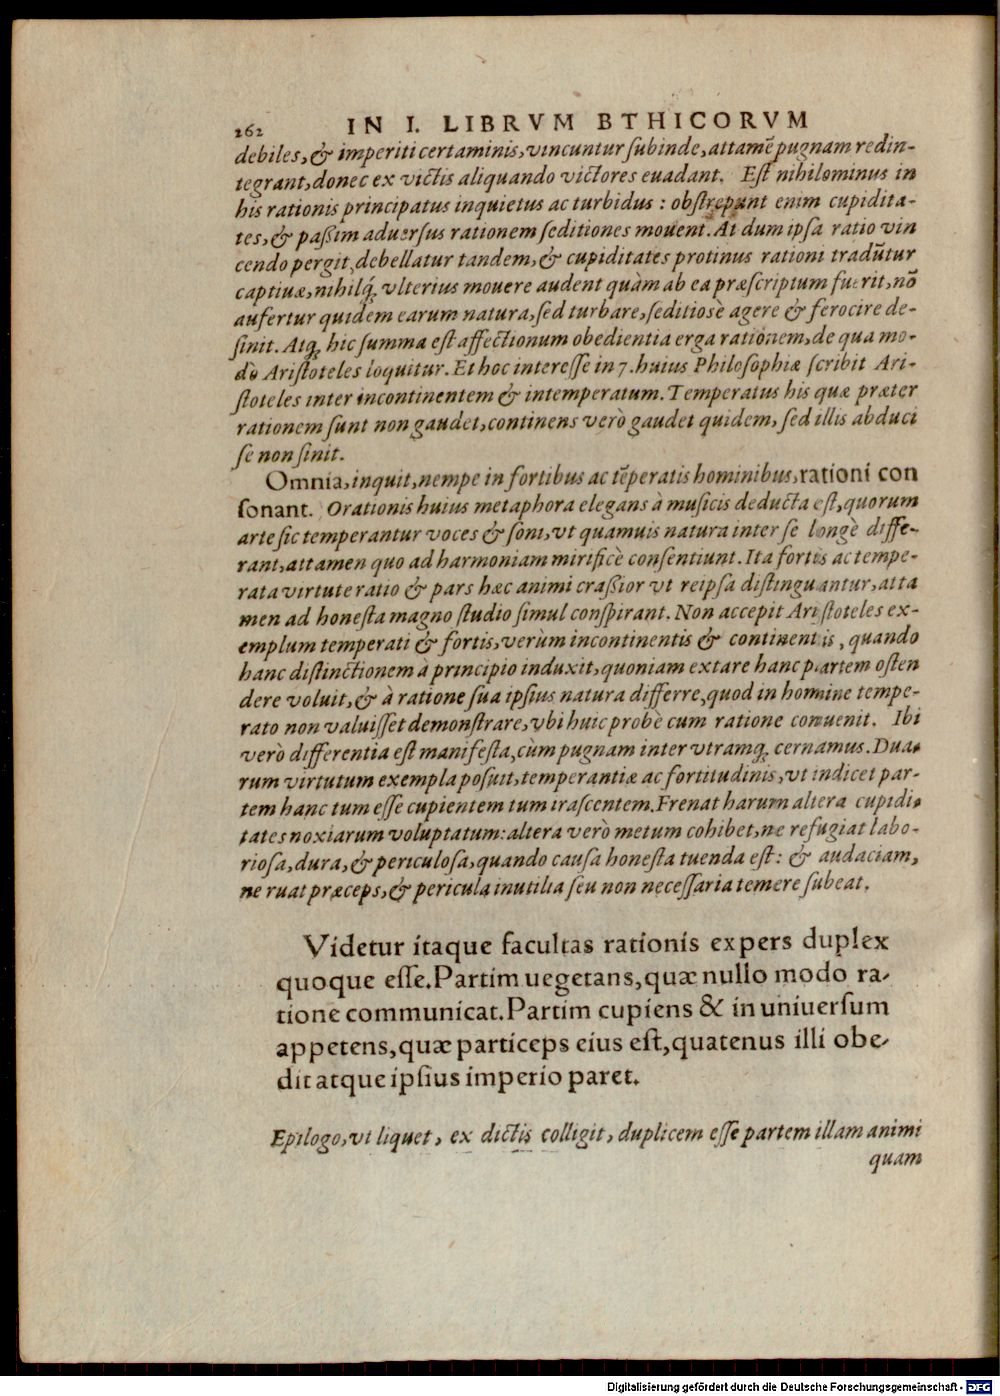 262 IN I. LIBRVM BTHICORVM
debiles, & imperiti certaminis, vincuntur subinde, attamẽ pugnam redin-
tegrant, donec ex victis aliquando victores euadant. Est nihilominus in
his rationis principatus inquietus ac turbidus : obstrepunt enim cupidita-
tes, & paßim aduersus rationem seditiones mouent. At dum ipsa ratio vin
cendo pergit, debellatur tandem, & cupiditates protinus rationi tradũtur
captiuæ, nihilq́ vlterius mouere audent quàm ab ea præscriptum fuerit, nõ
aufertur quidem earum natura, sed turbare, seditiosè agere & ferocire de-
sinit. Atq; hic summa est affectionum obedientia erga rationem, de qua mo-
dò Aristoteles loquitur. Et hoc interesse in 7. huius Philosophiæ scribit Ari-
stoteles inter incontinentem & intemperatum. Temperatus his quæ præter
rationem sunt non gaudet, continens verò gaudet quidem, sed illis abduci
se non sinit.
Omnia, inquit, nempe in fortibus ac tẽperatis hominibus, rationi con
sonant. Orationis huius metaphora elegans à musicis deducta est, quorum
arte sic temperantur voces & soni, vt quamuis natura inter se longè diffe-
rant, attamen quo ad harmoniam mirificè consentiunt. Ita fortis ac tempe-
rata virtute ratio & pars hæc animi craßior vt reipsa distinguantur, atta
men ad honesta magno studio simul conspirant. Non accepit Aristoteles ex-
emplum temperati & fortis, verùm incontinentis & continentis, quando
hanc distinctionem à principio induxit, quoniam extare hanc partem osten
dere voluit, & à ratione sua ipsius natura differre, quod in homine tempe-
rato non valuisset demonstrare, vbi huic probè cum ratione conuenit. Ibi
verò differentia est manifesta, cùm pugnam inter vtramq; cernamus. Dua-
rum virtutum exempla posuit, temperantiæ ac fortitudinis, vt indicet par-
tem hanc tum esse cupientem tum irascentem. Frenat harum altera cupidi-
tates noxiarum voluptatum: altera verò metum cohibet, ne refugiat labo-
riosa, dura, & periculosa, quando causa honesta tuenda est: & audaciam,
ne ruat præceps, & pericula inutilia seu non necessaria temere subeat.
Videtur itaque facultas rationis expers duplex
quoque esse. Partim uegetans, quæ nullo modo ra-
tione communicat. Partim cupiens & in uniuersum
appetens, quæ particeps eius est, quatenus illi obe-
dit atque ipsius imperio paret.
Epilogo, vt liquet, ex dictis colligit, duplicem esse partem illam animi
quam
Digitalisierung gefördert durch die Deutsche Forschungsgemeinschaft - DFG